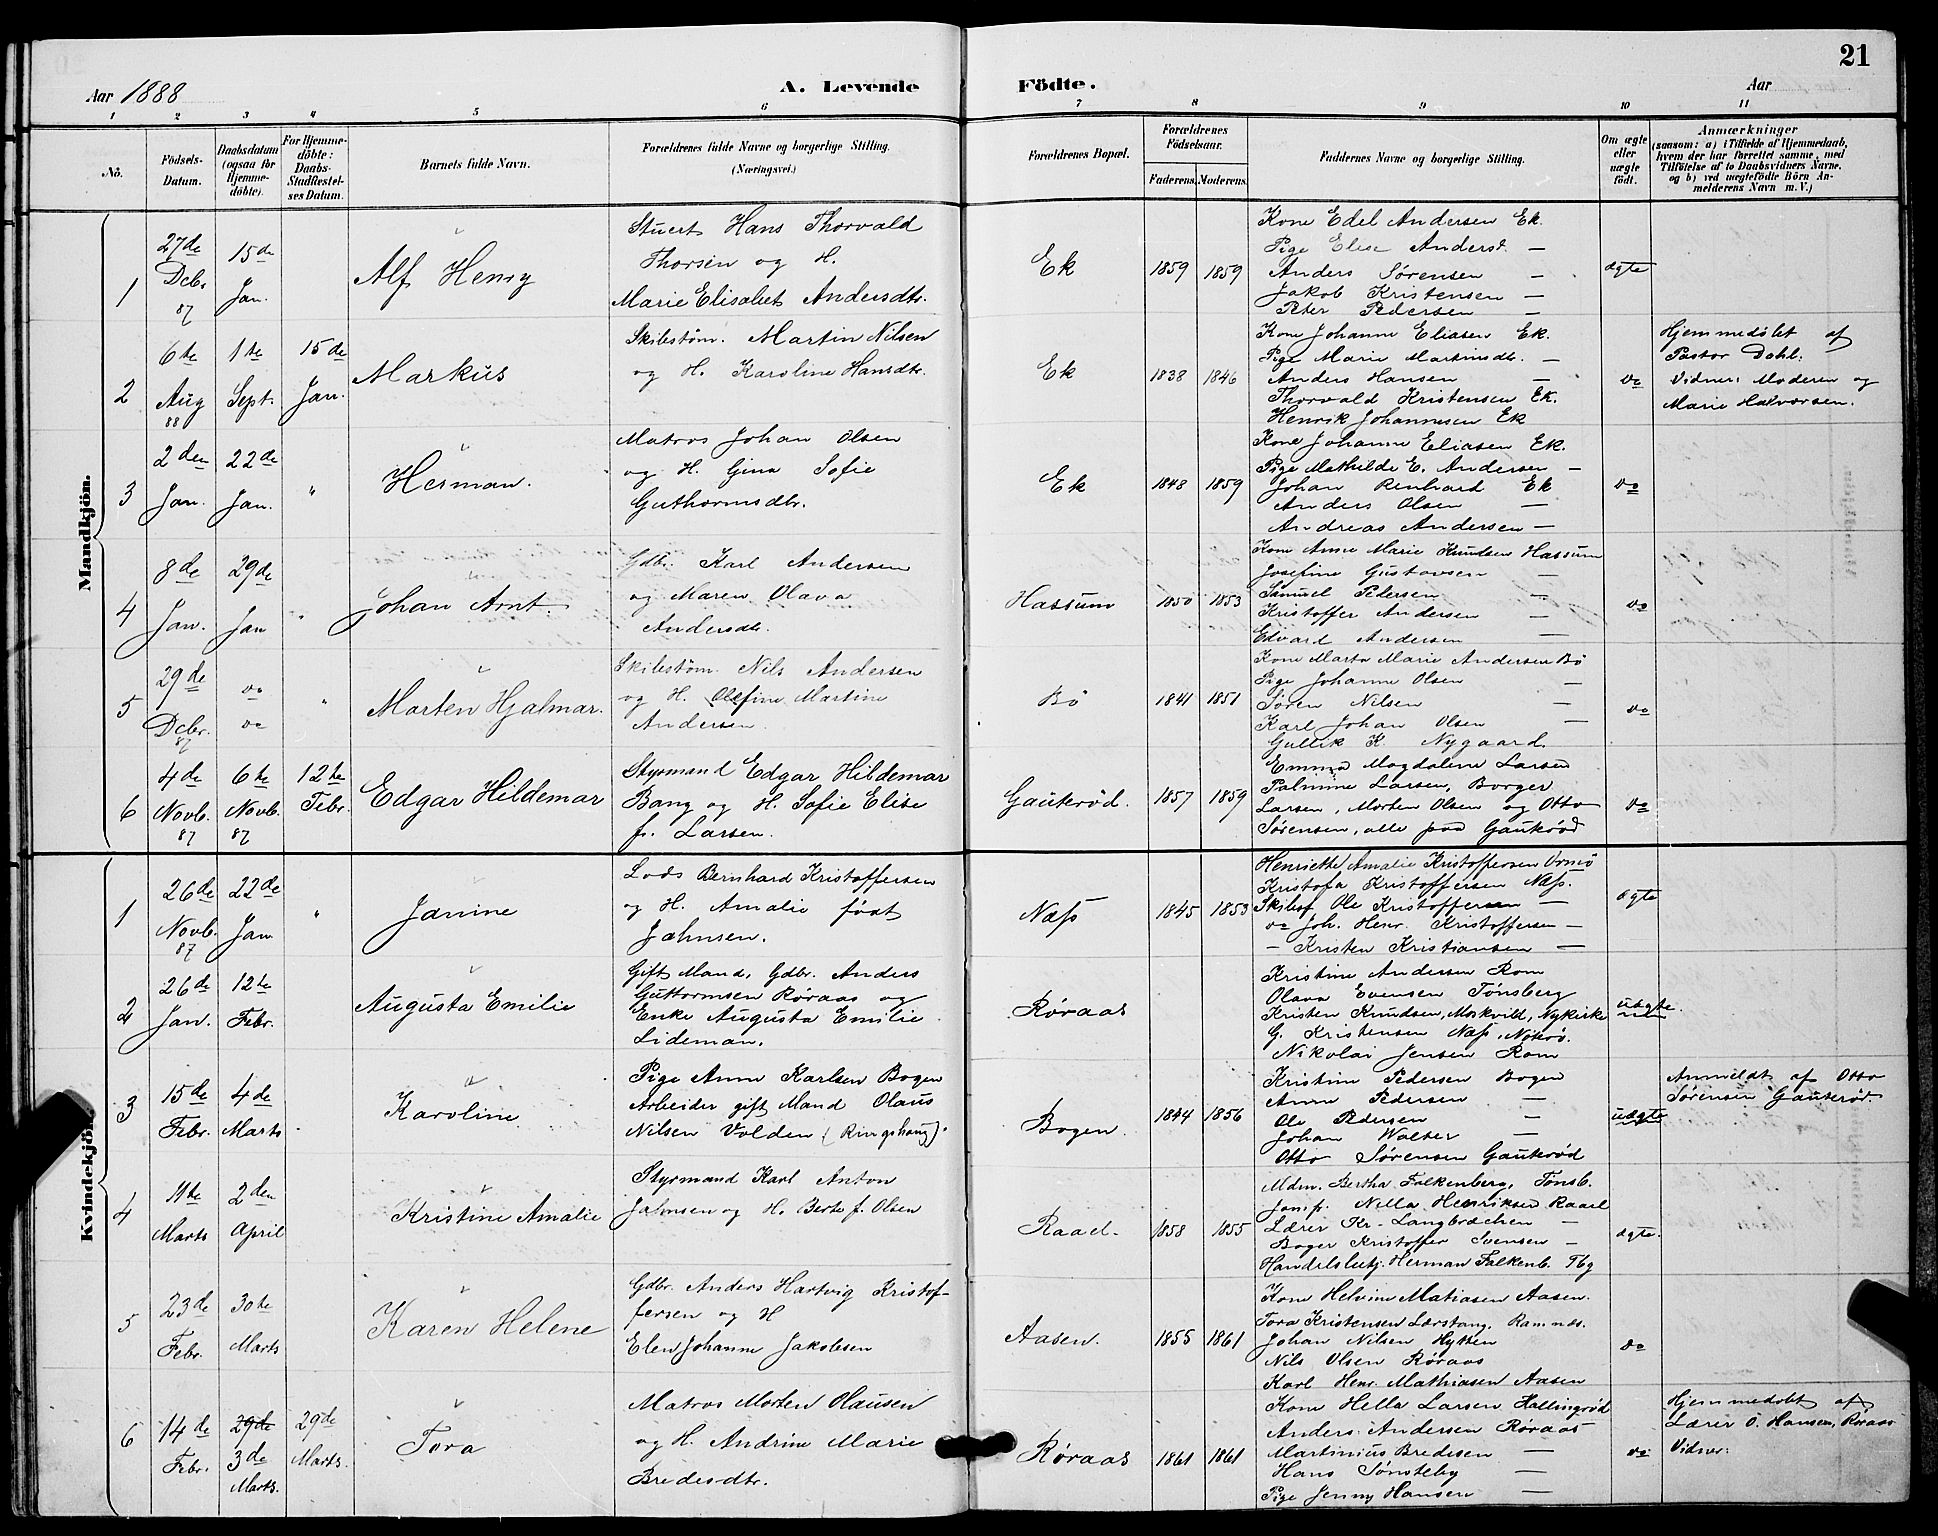 21
Aar 1888
A. Levende
Födte.
Aar
1 2 3 4 5 6 7 8 9 10 11
No.
Födsels-
Datum.
Daabsdatum
(ogsaa for
Hjemme-
döbte).
For Hjemme-
döbte:
Daabs-
Stadfæstel-
ses Datum.
Barnets fulde Navn.
Forældrenes fulde Navne og borgerlige Stilling.
(Næringsvei.)
Forældrenes Bopæl.
Forældrenes
Födselsaar.
Faderens. Moderens.
Faddernes Navne og borgerlige Stilling.
Om ægte
eller
uægte
født.
Anmærkninger
(saasom: a) i Tilfælde af Hjemmedaab,
hvem der har forrettet samme, med
Tilföielse af to Daabsvidners Navne,
og b) ved uægtefödte Börn An-
melderens Navn m. V.)
Mandkjön.
1
27de
Dcbr.
87
15de
Jan.
Alf Henry
Stuert Hans Thorvald
Thorsen og H.
Marie Elisabet Andersdtr.
Ek
1859 1859
Kone Edel Andersen Ek.
Pige Elise Andersd. —
Anders Sørensen —
Jakob Kristensen —
Peter Pedersen —
ægte
2
6te
Aug
88
1te
Sept.
15de
Jan.
Markus
Skibstøm. Martin Nilsen
og H. Karoline Hansdtr.
Ek
1838 1846
Kone Johanne Eliasen Ek.
Pige Marie Martinsdtr. —
Anders Hansen —
Thorvald Kristensen Ek.
Henrik Johannesen Ek
do
Hjemmedøbt af
Pastor Dahl.
Vidner: Moderen og
Marie Halvorsen.
3
2den
Jan.
22de
Jan.
"
Herman.
Matros Johan Olsen
og H. Gina Sofie
Guthormsdtr.
Ek
1848 1859
Kone Johanne Eliasen Ek.
Pige Mathilde E. Andersen —
Johan Renhard Ek
Anders Olsen —
Andreas Andersen —
do
4
8de
Jan.
29de
Jan
"
Johan Arnt.
Gdbr. Karl Andersen
og Maren Olava
Andersdtr.
Hassum
1850 1853
Kone Anne Marie Knudsen Hassum
Josefine Gustavsen —
Samuel Pedersen —
Kristoffer Andersen —
Edvard Andersen —
do
5
29de
Dcbr.
87
do
do
"
Morten Hjalmar.
Skibstøm. Nils Andersen
og H. Olefine Martine
Andersen.
Bö
1841 1851
Kone Marta Marie Andersen Bö
Pige Johanne Olsen —
Søren Nilsen —
Karl Johan Olsen —
Gullik K. Nygaard.
do
6
4de
Novb.
87
6te
Novb.
87
12te
Febr.
Edgar Hildemar
Styrmand Edgar Hildemar
Bang og H. Sofie Elise
f. Larsen.
Gauterød.
1857 1859
Emma Magdalene Larsen
Palmine Larsen, Borger
Larsen, Morten Olsen og Otto
Sørensen, alle paa Gauterød
do
Kvindekjön.
1
26de
Novb.
87
22de
Jan
"
Janine
Lods Bernhard Kristoffersen
og H. Amalie født
Jahnsen.
Næss
1845 1853
Henriette Amalie Kristoffersen Ormö
Kristofa Kristoffersen Næss.
Skibsf Ole Kristoffersen —
do Joh. Henr. Kristoffersen —
— Kristen Kristiansen —
ægte
2
26de
Jan.
12te
Febr.
Augusta Emilie
Gift Mand, Gdbr. Anders
Guttormsen Røraas og
Enke Augusta Emilie
Lideman.
Røraas
Kristine Andersen Rom
Olava Evensen Tønsberg
Kristen Knudsen, Moskvild, Nykirke
G. Kristensen Næss, Nøterø.
Nikolai Jensen Rom
uægte.
3
15de
Febr.
4de
Marts
Karoline
Pige Anne Karlsen Bogen
Arbeider gift Mand Olaus
Nilsen Volden (Ringshaug).
Bogen.
1844 1856
Kristine Pedersen Bogen
Anne Pedersen —
Ole Pedersen —
Johan Walter —
Otto Sørensen Gauterød
uægte
Anmeldt af Otto
Sørensen Gauterød
4
11te
Marts
2den
April
Kristine Amalie
Styrmand Karl Anton
Jahnsen og H. Berte f. Olsen
Raael.
1858 1855
Mdm. Bertha Falkenberg, Tønsb.
Jomf. Nella Henriksen Raael
Lærer Kr. Langbrækken —
Bager Kristoffer Svensen —
Handelsbetj. Herman Falkenb. Tbg
ægte.
5
23de
Febr.
30te
Marts
Karen Helene
Gdbr. Anders Hartvig Kristof-
fersen og H
Elen Johanne Jakobsen
Aasen.
1855 1861
Kone Helvine Matiasen Aasen.
Tora Kristensen Lerstang, Ramnæs.
Johan Nilsen Hytten
Nils Olsen Røraas
Karl Henr. Mathiasen Aasen
do
6
14de
Febr.
29de
3de
Marts.
29de
Marts.
Tora
Matros Morten Olausen
og H. Andrine Marie
Bredesdtr.
Røraas
1861 1861
Kone Hella Larsen Hallingrød
Anders Andersen Røraas
Martinius Bredesen —
Hans Sønsteby —
Pige Jenny Hansen —
do
Hjemmedøbt af
Lærer O. Hansen, Røraas
Vidner: